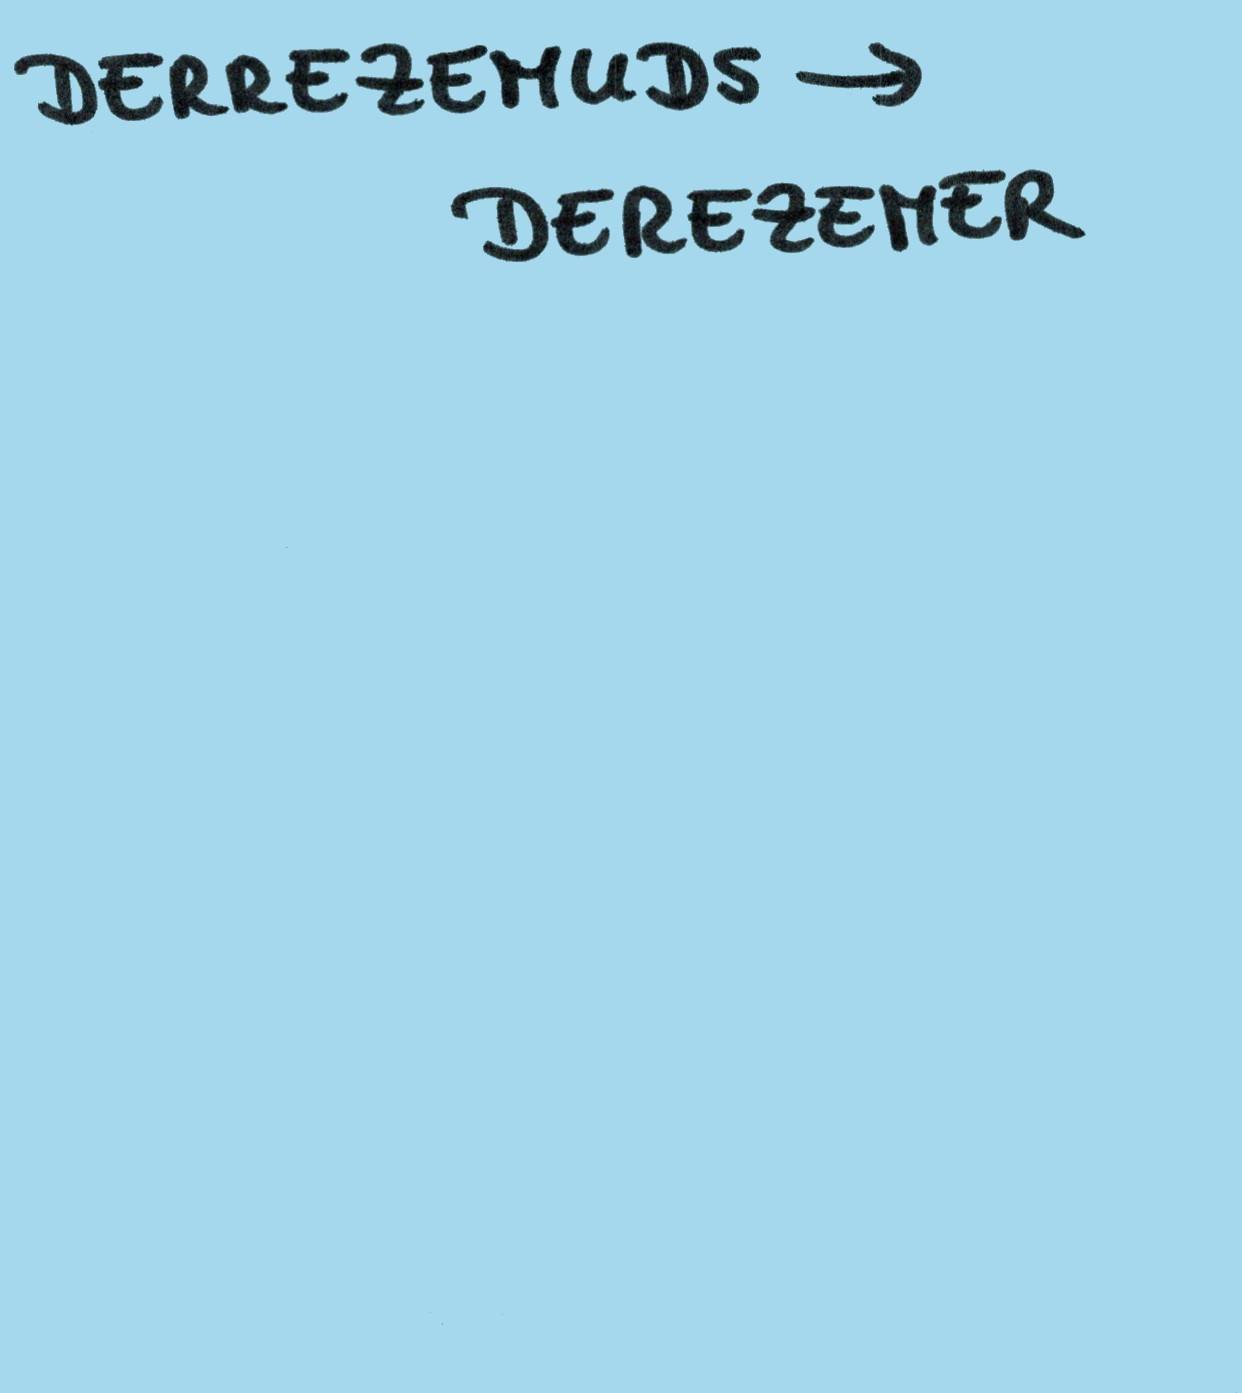 DERREZEMUDS →
DEREZEMER